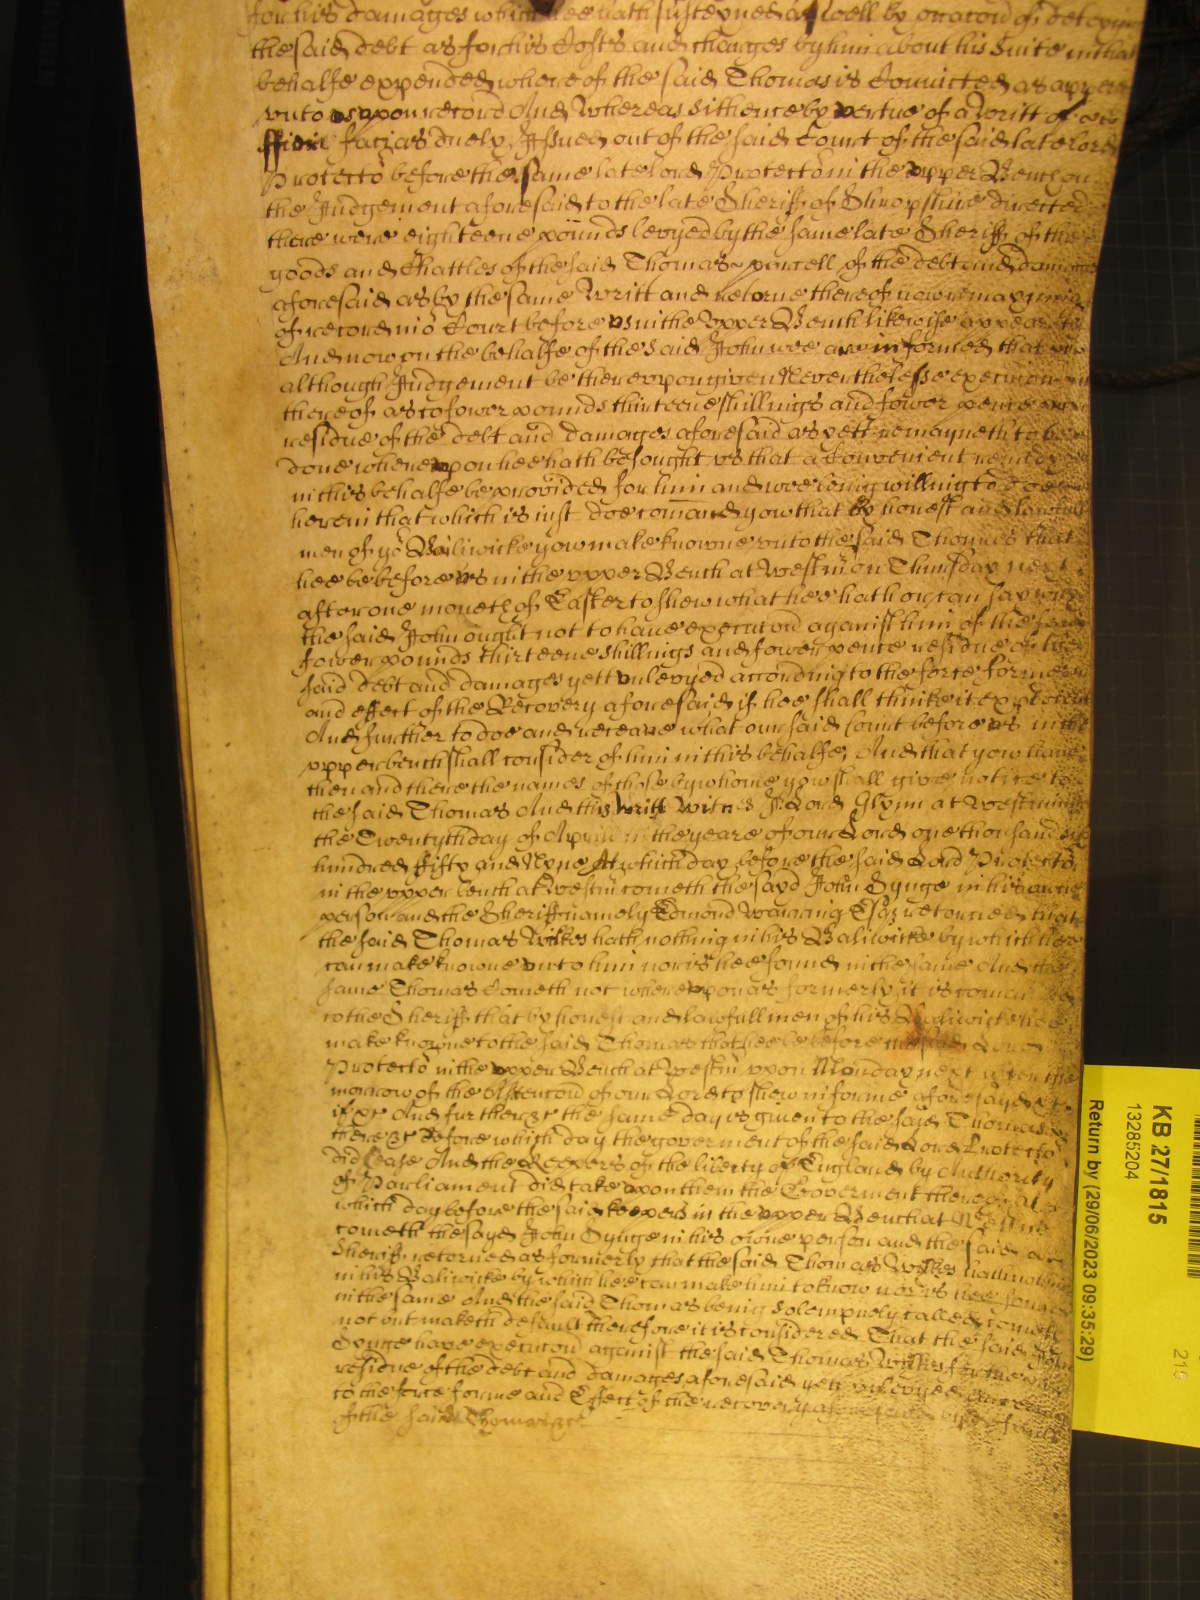 for his damages which hee hath susteyned as well by occacon of deteyn
the said debt as for his Costs and charges by him about his Suite in that
behalfe expended whereof the said Thomas is Convicted as appeares
unto us upon record And Whereas sithence by vertue of a Writt of
ffieri facias duely Issued out of the said Court of the said late Lord
Protecto before the same late Lord Protecto in the upper Bench on
the Judgement aforesaid to the late Sheriff of Shropshire directed
there were eighteene pounds levyed by the same late Sheriff of the
goods and Chattles of the said Thomas parcell of the debt and damages
aforesaid as by the same Writt and retorne thereof now remayning
of record in o Court before us in the Upper Bench likewise appeareth
And now on the behalfe of the said John wee are informed that
although Judgement be thereupon given Neverthelesse execution
thereof as to fower pounds thirteene shillings and fower pence
residue of the debt and damages aforesaid as yett remayneth to be
done whereupon hee hath besought us that a Convenient remedy
in this behalfe be provided for him and wee being willing to doe
herein that which is iust doe comand yow that by honest and lawfull
men of yo Bailiwicke yow make knowne unto the said Thomas that
hee be before us in the upper Bench at Westm on Thursday next
after one moneth of Easter to shew what hee hath or can say why
the said John ought not to have execucon against him of the said
fower pounds thirteene shillings and fower pence residue of the
said debt and damages yett unlevyed according to the force forme
and effect of the Recovery aforesaid if hee shall thinke it expedient
And further to doe and receave what our said Court before us in the
upper bench shall consider of him in this behalfe, And that yow have
then and there the names of those by whome yow shall give notice to
the said Thomas And this writt Witnes J Lord Glynn at Westminster
the Twentyth day of Aprill in the yeare of our Lord one thousand six
hundred ffifty and Nyne At which day before the said Lord Protecto
in the upper bench at Westm cometh the sayd John Synge in his owne
person and the Sheriff namely Edmond Warring Esq retorned that
the said Thomas Wilkes hath nothing in his Bailiwicke by which hee
can make knowne unto him nor is hee found in the same And the
same Thomas Cometh not whereupon as formerly it is coman
to the Sheriff that by honest and lawfull men of his Bailiwicke hee
make knowne to the said Thomas that hee be before the said Lord
Protecto in the upper Bench at Westm upon Monday next after the
morrow of the Ascencon of our Lord to shew in forme aforesayd
if &c And further &c the same day is given to the sayd Thomas
there &c Before which day the goverment of the said Lord Protecto
did Cease And the Keepers of the liberty of England by Authority
of Parliament did take upon them the Goverment thereof At
which day before the said keepers in the upper Bench at Westm
cometh the sayd John Synge in his owne person and the said
Sheriff retorned as formerly that the said Thomas Wilkes hath nothing
in his Bailiwicke by which hee can make him to know nor is hee found
in the same And the said Thomas being solempnely called cometh
not but maketh default therefore it is considered That the said John
Synge have execucon against the said Thomas Wilkes for the
residue of the debt and damages aforesaid yett unlevyed according
to the force forme and Effect of the recovery aforesaid by default
of the said Thomas &c